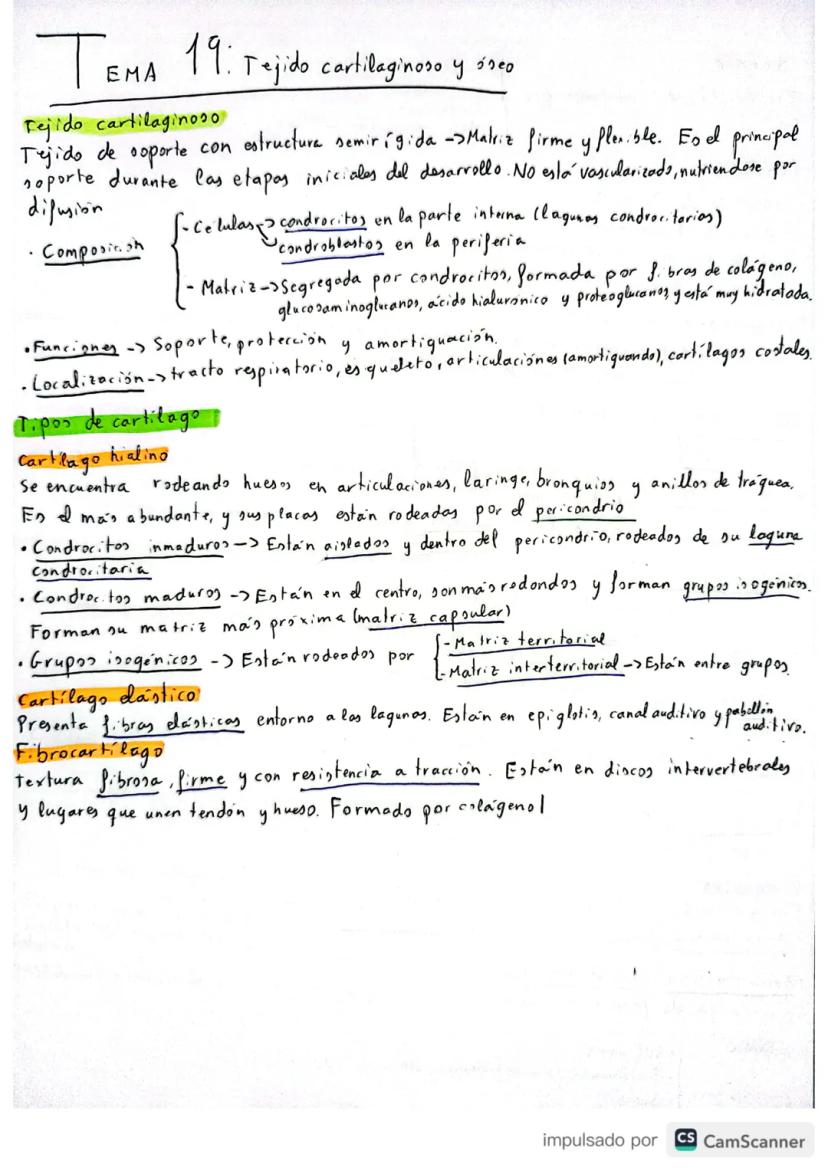 TEMA 19: Tejido cartilaginoso y óseo
Tejido cartilaginoso
Tejido de soporte con estructura semirígida -> Matriz firme y flexible. Es el principal
soporte durante las etapas iniciales del desarrollo. No está vascularizado, nutriendose por
difusión
· Composición
- Celulas -> condrocitos en la parte interna (lagunas condrocitarias)
condroblastos en la periferia
- Matriz -> Segregada por condrocitos, formada por fibras de colágeno,
glucosaminoglucanos, ácido hialurónico y proteoglucanos, y está muy hidratada.
· Funciones -> Soporte, protección y amortiguación.
· Localización -> tracto respiratorio, esqueleto, articulaciones (amortiguando), cartílagos costales.
Tipos de cartílago
Cartílago hialino
Se encuentra rodeando huesos en articulaciones, laringe, bronquios y anillos de tráquea.
Es el más abundante, y sus placas están rodeadas por el pericondrio
· Condrocitos inmaduros -> Están aislados y dentro del pericondrio, rodeados de su laguna
condrocitaria
· Condrocitos maduros -> Están en el centro, son más redondos y forman grupos isogénicos.
Forman su matriz más próxima (matriz capsular)
· Grupos isogénicos -> Están rodeados por
- Matriz territorial
- Matriz interterritorial -> Están entre grupos.
Cartílago elástico
Presenta fibras elásticas entorno a las lagunas. Están en epiglotis, canal auditivo y pabellón
auditivo.
Fibrocartílago
textura fibrosa, firme y con resistencia a tracción. Están en discos intervertebrales
y lugares que unen tendón y hueso. Formado por colágeno I
impulsado por CS CamScanner